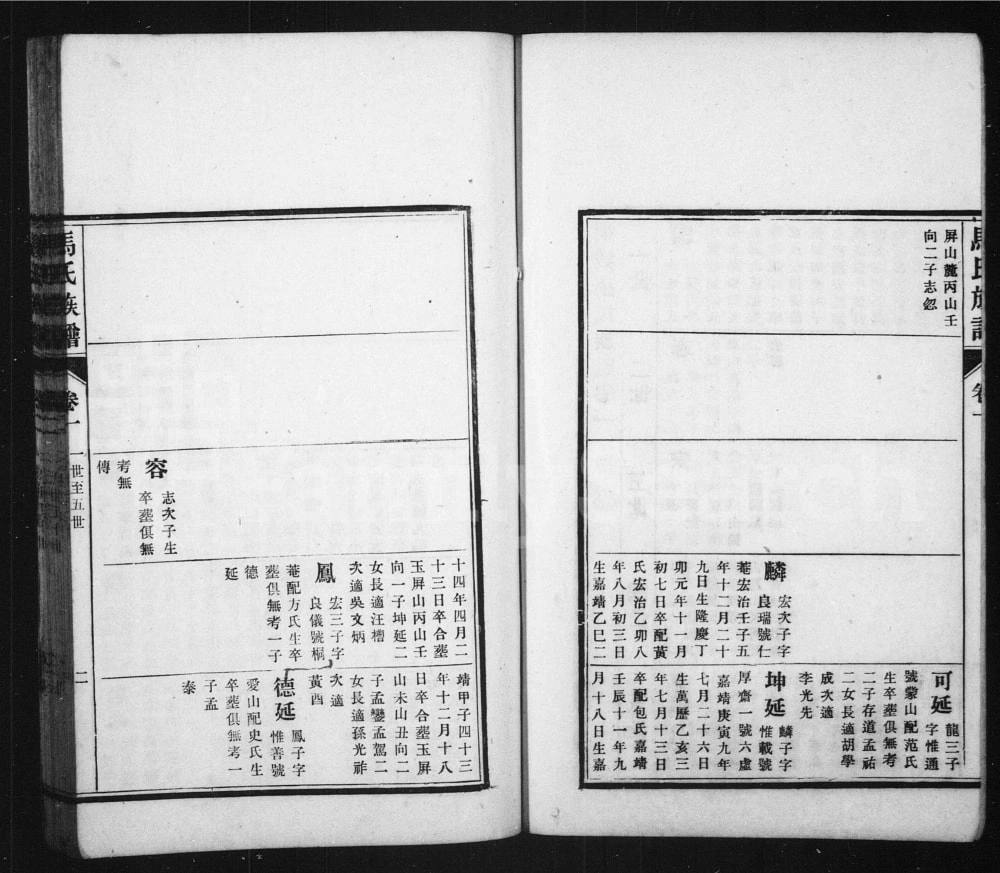 馬氏族譜
卷一
屏山麓丙山壬
向二子志忽
麟
宏次子字
良瑞號仁
菴宏治壬子五
年十二月二十
九日生隆慶丁
卯元年十一月
初七日卒配黃
氏宏治乙卯八
年八月初三日
生嘉靖乙巳二
可延
龍三子
字惟通
號蒙山配范氏
生卒塟俱無考
二子存道孟祐
二女長適胡學
成次適
李光先
坤延
麟子字
惟載號
厚齋一號六虛
嘉靖庚寅九年
七月二十六日
生萬歷乙亥三
年七月十三日
卒配包氏嘉靖
壬辰十一年九
月十八日生嘉
容
志次子生
卒塟俱無
考無
傳
十四年四月二
十三日卒合塟
玉屏山丙山壬
向一子坤延二
女長適汪槽
次適吳文炳
鳳
宏三子字
良儀號桐
菴配方氏生卒
塟俱無考一子
德
延
靖甲子四十三
年十二月十八
日卒合塟玉屏
山未山丑向二
子孟鑾孟駕二
女長適孫光祚
次適
黃酉
德延
鳳子字
惟善號
愛山配史氏生
卒塟俱無考一
子孟
泰
馬氏族譜
卷一
一世至五世
二